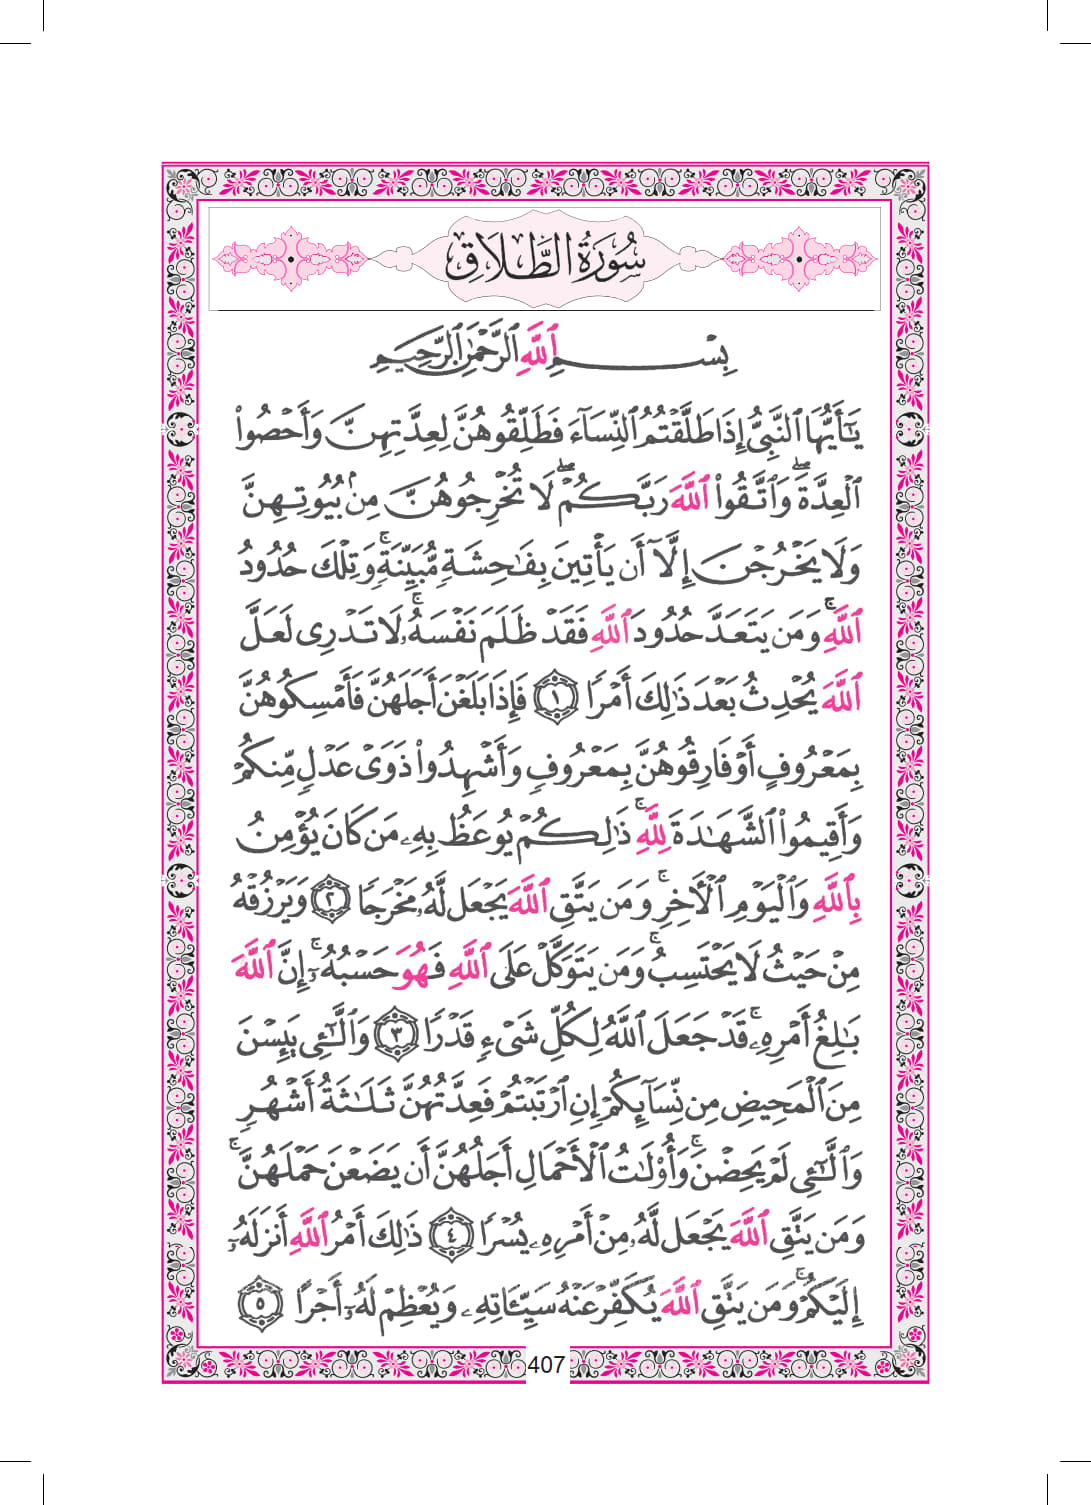 سُورَةُ الطَّلَاقِ
بِسْمِ ٱللَّهِ ٱلرَّحْمَٰنِ ٱلرَّحِيمِ
يَٰٓأَيُّهَا ٱلنَّبِىُّ إِذَا طَلَّقْتُمُ ٱلنِّسَآءَ فَطَلِّقُوهُنَّ لِعِدَّتِهِنَّ وَأَحْصُوا۟
ٱلْعِدَّةَ ۖ وَٱتَّقُوا۟ ٱللَّهَ رَبَّكُمْ ۖ لَا تُخْرِجُوهُنَّ مِنۢ بُيُوتِهِنَّ
وَلَا يَخْرُجْنَ إِلَّآ أَن يَأْتِينَ بِفَٰحِشَةٍ مُّبَيِّنَةٍ ۚ وَتِلْكَ حُدُودُ
ٱللَّهِ ۚ وَمَن يَتَعَدَّ حُدُودَ ٱللَّهِ فَقَدْ ظَلَمَ نَفْسَهُۥ ۚ لَا تَدْرِى لَعَلَّ
ٱللَّهَ يُحْدِثُ بَعْدَ ذَٰلِكَ أَمْرًا ۝١ فَإِذَا بَلَغْنَ أَجَلَهُنَّ فَأَمْسِكُوهُنَّ
بِمَعْرُوفٍ أَوْ فَارِقُوهُنَّ بِمَعْرُوفٍ وَأَشْهِدُوا۟ ذَوَىْ عَدْلٍ مِّنكُمْ
وَأَقِيمُوا۟ ٱلشَّهَٰدَةَ لِلَّهِ ۚ ذَٰلِكُمْ يُوعَظُ بِهِۦ مَن كَانَ يُؤْمِنُ
بِٱللَّهِ وَٱلْيَوْمِ ٱلْـَٔاخِرِ ۚ وَمَن يَتَّقِ ٱللَّهَ يَجْعَل لَّهُۥ مَخْرَجًا ۝٢ وَيَرْزُقْهُ
مِنْ حَيْثُ لَا يَحْتَسِبُ ۚ وَمَن يَتَوَكَّلْ عَلَى ٱللَّهِ فَهُوَ حَسْبُهُۥٓ ۚ إِنَّ ٱللَّهَ
بَٰلِغُ أَمْرِهِۦ ۚ قَدْ جَعَلَ ٱللَّهُ لِكُلِّ شَىْءٍ قَدْرًا ۝٣ وَٱلَّٰٓـِٔى يَئِسْنَ
مِنَ ٱلْمَحِيضِ مِن نِّسَآئِكُمْ إِنِ ٱرْتَبْتُمْ فَعِدَّتُهُنَّ ثَلَٰثَةُ أَشْهُرٍ
وَٱلَّٰٓـِٔى لَمْ يَحِضْنَ ۚ وَأُو۟لَٰتُ ٱلْأَحْمَالِ أَجَلُهُنَّ أَن يَضَعْنَ حَمْلَهُنَّ ۚ
وَمَن يَتَّقِ ٱللَّهَ يَجْعَل لَّهُۥ مِنْ أَمْرِهِۦ يُسْرًا ۝٤ ذَٰلِكَ أَمْرُ ٱللَّهِ أَنزَلَهُۥٓ
إِلَيْكُمْ ۚ وَمَن يَتَّقِ ٱللَّهَ يُكَفِّرْ عَنْهُ سَيِّـَٔاتِهِۦ وَيُعْظِمْ لَهُۥٓ أَجْرًا ۝٥
407